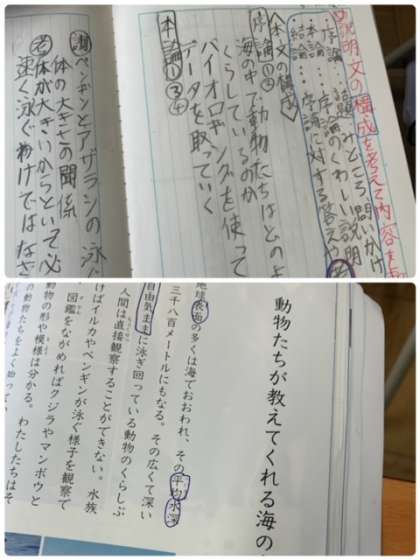 説明文の構成を考えて内容を
序論…話題 みどころ、問いかけ
本論…序論のくわしい説明
結論…序論に対する答え
〈本文の構成〉
序論①②
海の中で動物たちはどのよ
くらしているのか
バイオロギングを使って
データを取っていく
本論①③④
ペンギンとアザラシの泳
体の大きさの関係
体が大きいからといって必
速く泳ぐわけではなさ
動物たちが教えてくれる海の
地球表面の多くは海でおおわれ、その平均水深
三千八百メートルにもなる。その広くて深い
自由気ままに泳ぎ回っている動物のくらしぶ
人間は直接観察することができない。水族
けばイルカやペンギンが泳ぐ様子を観察で
図鑑をながめればクジラやマンボウと
動物の形や模様は分かる。わたしたちはそ
の動物たちをよく知ってい